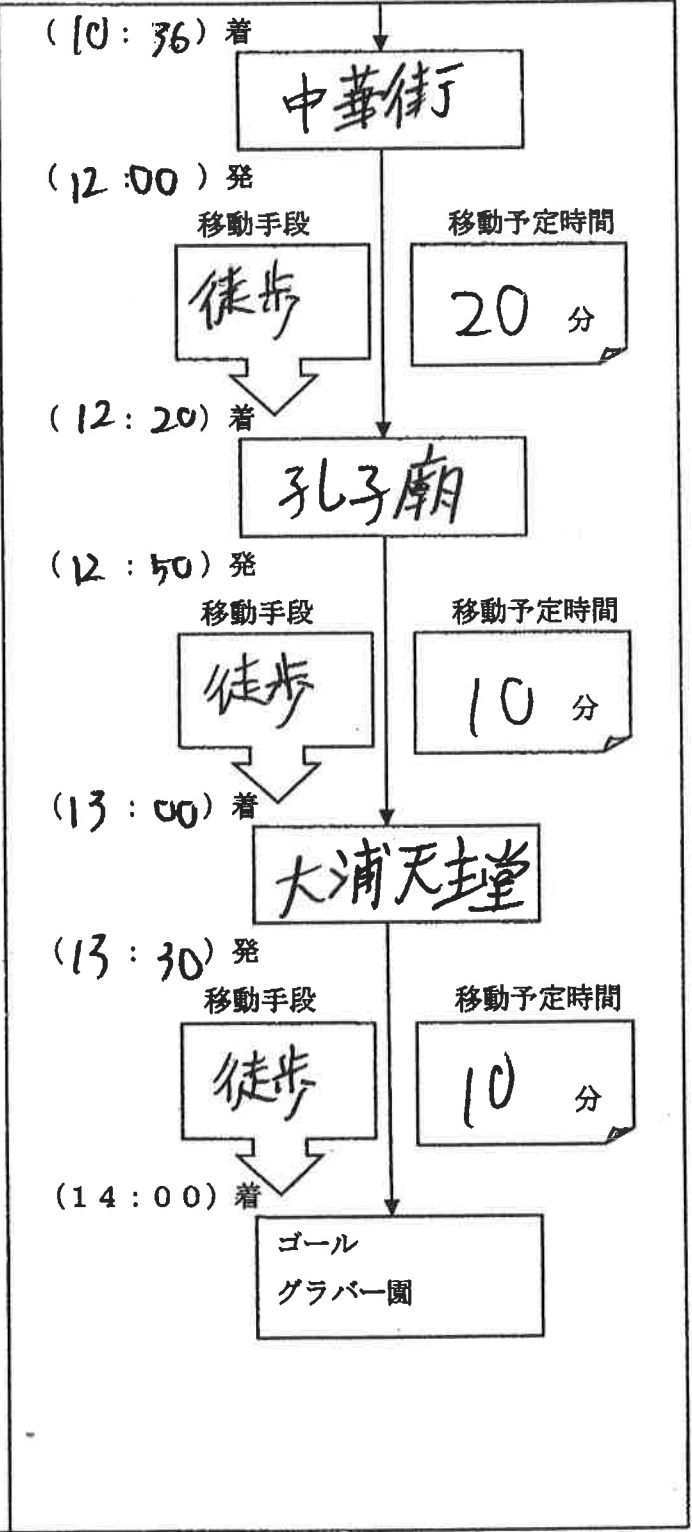 (10:36)着
中華街
(12:00)発
移動手段 移動予定時間
徒歩 20 分
(12:20)着
孔子廟
(12:50)発
移動手段 移動予定時間
徒歩 10 分
(13:00)着
大浦天主堂
(13:30)発
移動手段 移動予定時間
徒歩 10 分
(14:00)着
ゴール
グラバー園